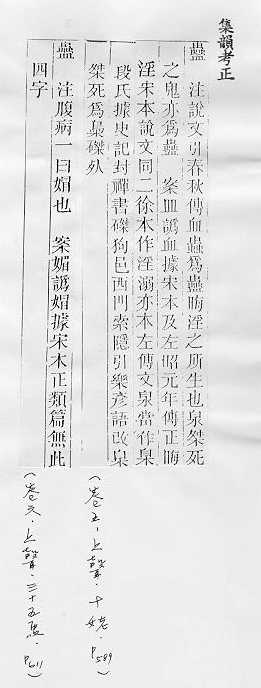 集韻考正
蠱 注說文引春秋傳血蟲爲蠱晦淫之所生也臬桀死
之鬼亦爲蠱 案皿譌血據宋本及左昭元年傳正晦
淫宋本說文同二徐本作淫溺亦本左傳文臬當作梟
段氏據史記封禪書磔狗邑四門索隱引樂彥語改臬
桀死爲梟磔死
蠱 注腹病一曰媢也 案媚譌媢據宋本正類篇無此
四字
(卷五・上聲・十姥・P589)
(卷六・上聲・三十五馬・P611)